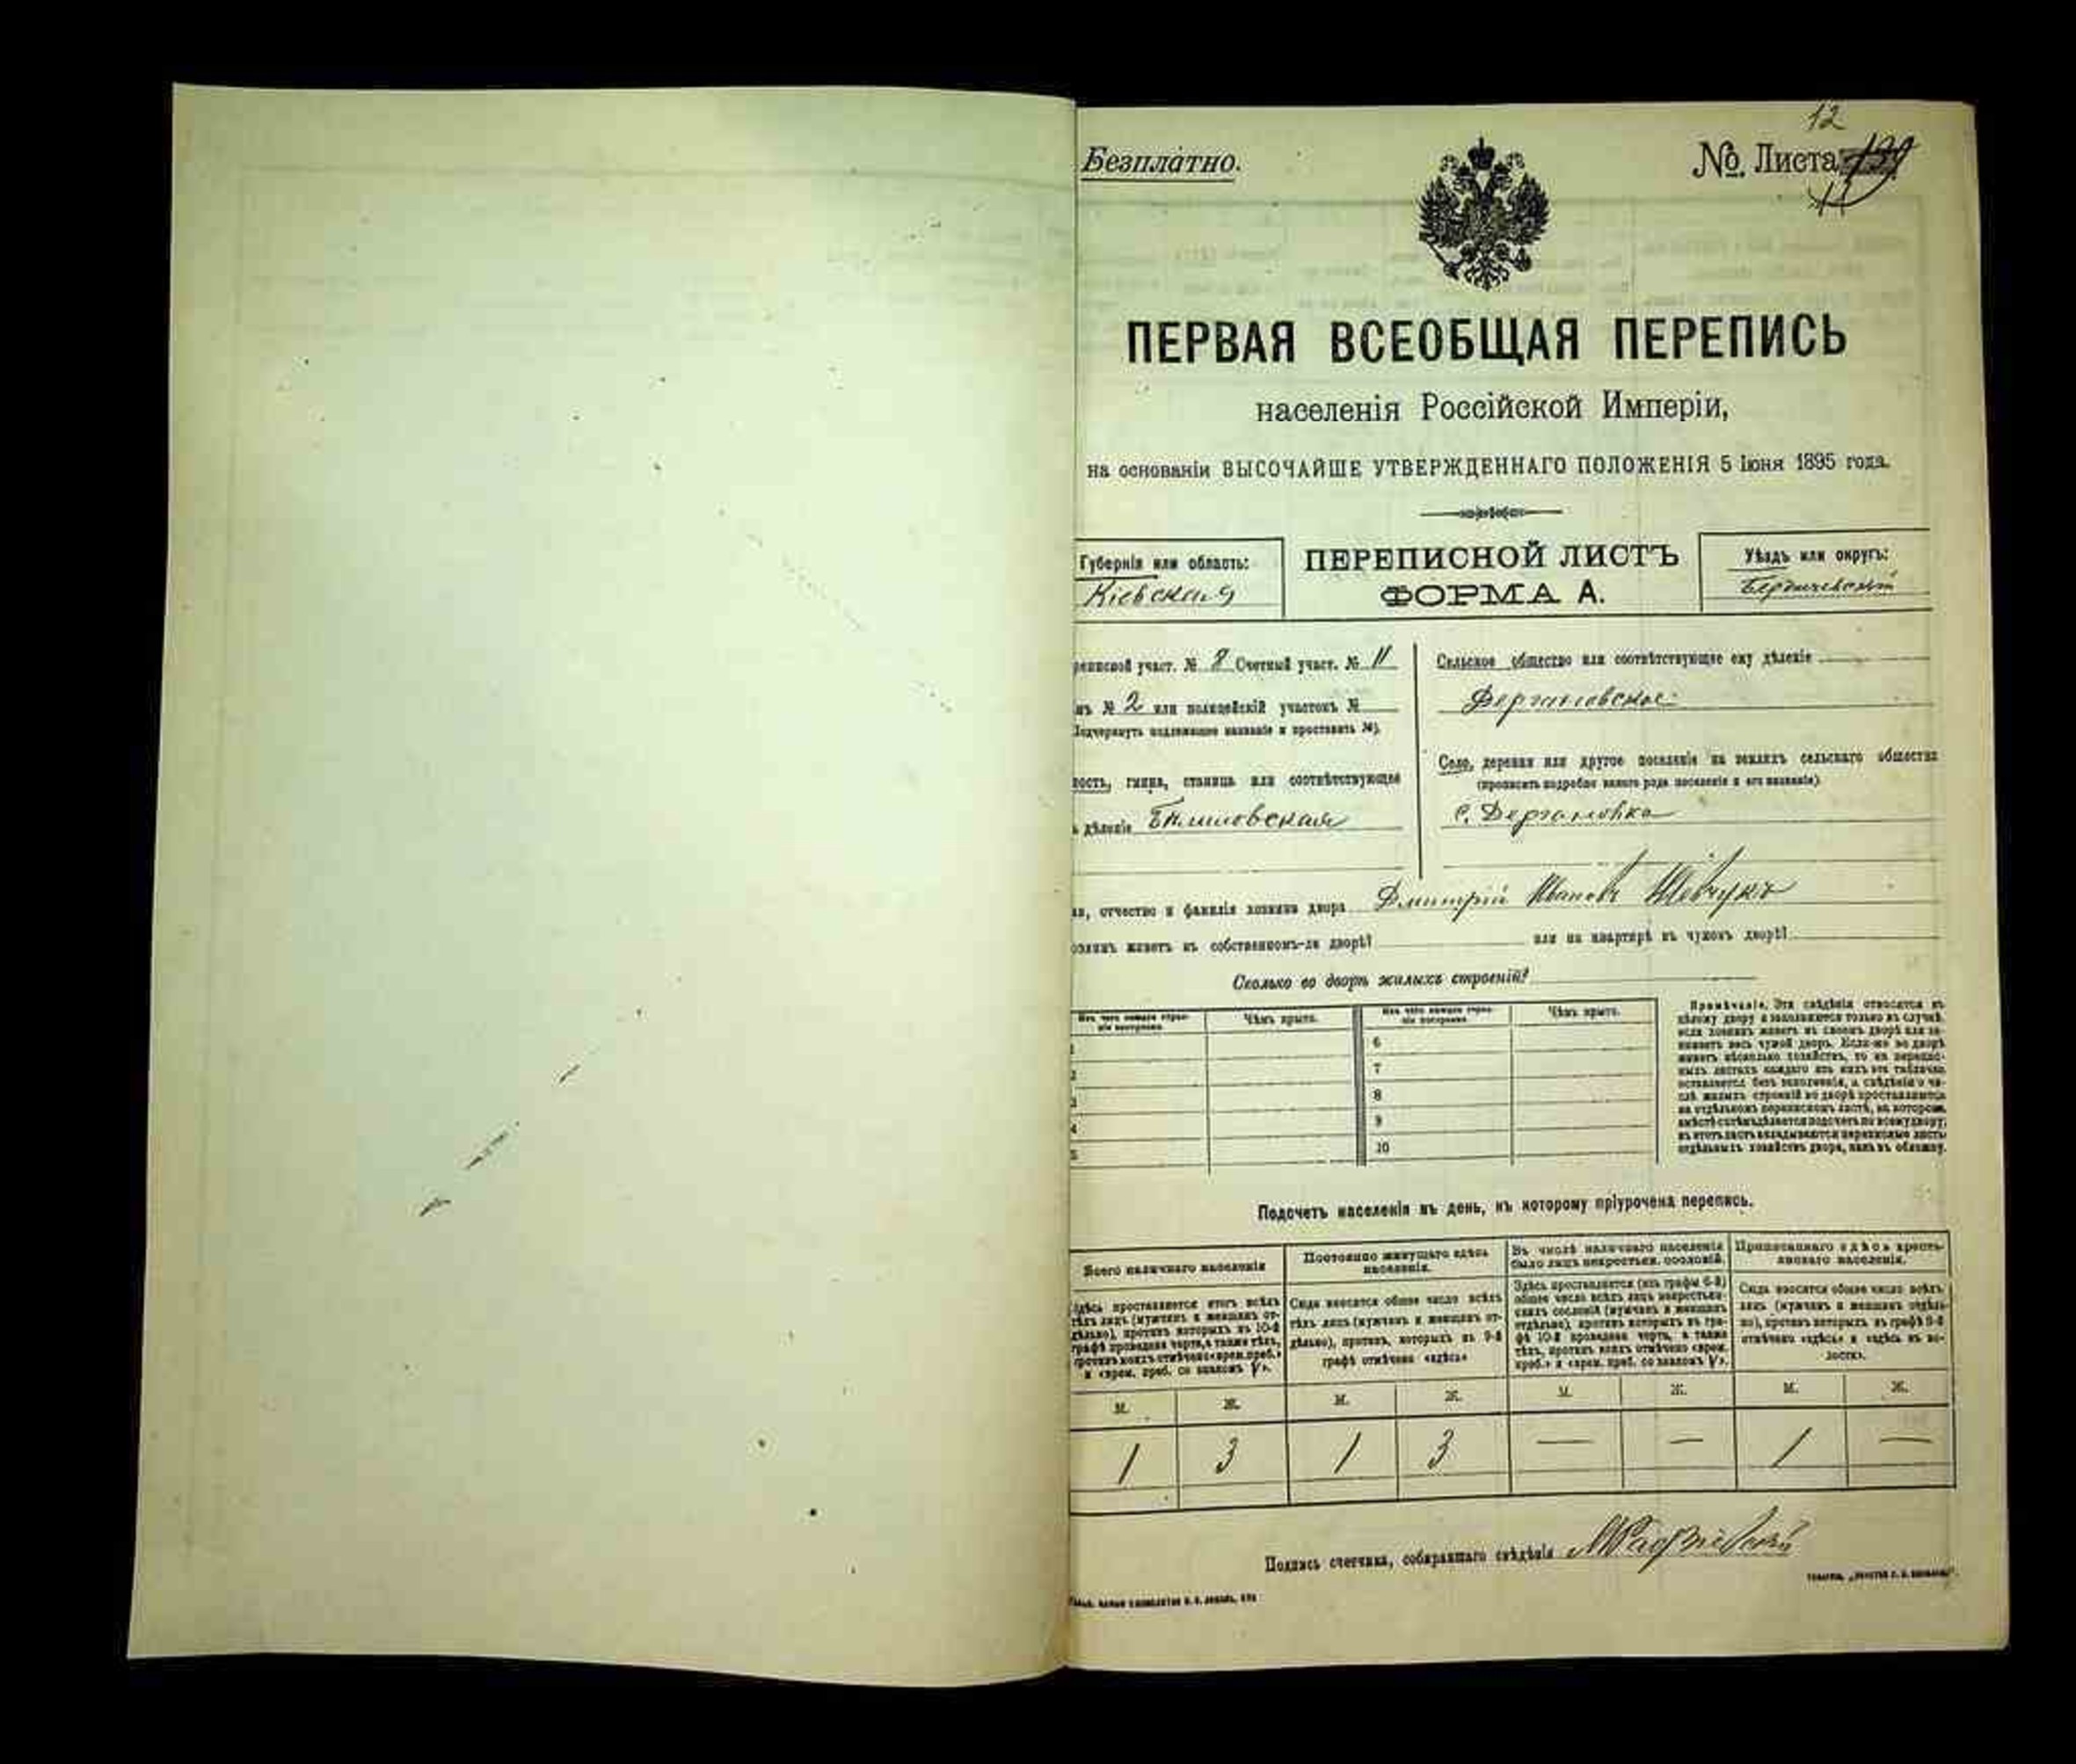 12
Безплатно.
№ Листа
ПЕРВАЯ ВСЕОБЩАЯ ПЕРЕПИСЬ
населенія Россійской Имперіи,
на основаніи ВЫСОЧАЙШЕ УТВЕРЖДЕННАГО ПОЛОЖЕНІЯ 5 Іюня 1895 года.
Губернія или область:
Кіевская
ПЕРЕПИСНОЙ ЛИСТЪ
ФОРМА А.
Уѣздъ или округъ:
Бердичевскій
реписной участ. № 8 Счетный участ. № 11
нъ № 2 или полицейскій участокъ №
Подчеркнуть надлежащее названіе и проставить №).
ость, гмина, станица или соотвѣтствующее
ъ дѣленіе
Сельское общество или соотвѣтствующее ему дѣленіе
Дергановское
Село, деревня или другое поселеніе на земляхъ сельскаго общества
(прописать подробно какого рода поселеніе и его названіе)
с. Дергановка
я, отчество и фамилія хозяина двора Дмитрій Ивановъ Шевчукъ
озяинъ живетъ въ собственномъ-ли дворѣ? или на квартирѣ въ чужомъ дворѣ?
Сколько во дворѣ жилыхъ строеній?
Изъ чего каждое строе-
ніе построено.
Чѣмъ крыто.
Изъ чего каждое строе-
ніе построено.
Чѣмъ крыто.
1
2
3
4
5
6
7
8
9
10
Примѣчаніе. Эти свѣдѣнія относятся къ
цѣлому двору и заполняются только въ случаѣ,
если хозяинъ живетъ въ своемъ дворѣ или за-
нимаетъ весь чужой дворъ. Если-же во дворѣ
живетъ нѣсколько хозяйствъ, то на перепис-
ныхъ листахъ каждаго изъ нихъ эта табличка
оставляется безъ заполненія, а свѣдѣнія о чи-
слѣ жилыхъ строеній во дворѣ проставляются
на отдѣльномъ переписномъ листѣ, на которомъ
вмѣстѣ съ тѣмъ дѣлается подсчетъ по всему двору;
въ этотъ листъ вкладываются переписные листы
отдѣльныхъ хозяйствъ двора, какъ въ обложку.
Подсчетъ населенія въ день, къ которому пріурочена перепись.
Всего наличнаго населенія
Здѣсь проставляется итогъ всѣхъ
тѣхъ лицъ (мужчинъ и женщинъ от-
дѣльно), противъ которыхъ въ 10-й
графѣ проведена черта, а также тѣхъ,
противъ коихъ отмѣчено «врем. преб.»
и «врем. преб. со знакомъ V».
Постоянно живущаго здѣсь
населенія.
Сюда вносится общее число всѣхъ
тѣхъ лицъ (мужчинъ и женщинъ от-
дѣльно), противъ, которыхъ въ 9-й
графѣ отмѣчено «здѣсь»
Въ числѣ наличнаго населенія
было лицъ некрестьян. сословій.
Здѣсь проставляется (изъ графы 6-й)
общее число всѣхъ лицъ некрестьян-
скихъ сословій (мужчинъ и женщинъ
отдѣльно), противъ которыхъ въ гра-
фѣ 10-й проведена черта, а также
тѣхъ, противъ коихъ отмѣчено «врем.
преб.» и «врем. преб. со знакомъ V».
Приписаннаго здѣсь кресть-
янскаго населенія.
Сюда вносится общее число всѣхъ
лицъ (мужчинъ и женщинъ отдѣль-
но), противъ которыхъ въ графѣ 8-й
отмѣчено «здѣсь» и «здѣсь въ во-
лости».
М. Ж. М. Ж. М. Ж. М. Ж.
1 3 1 3 — — 1 —
Подпись счетчика, собиравшаго свѣдѣнія